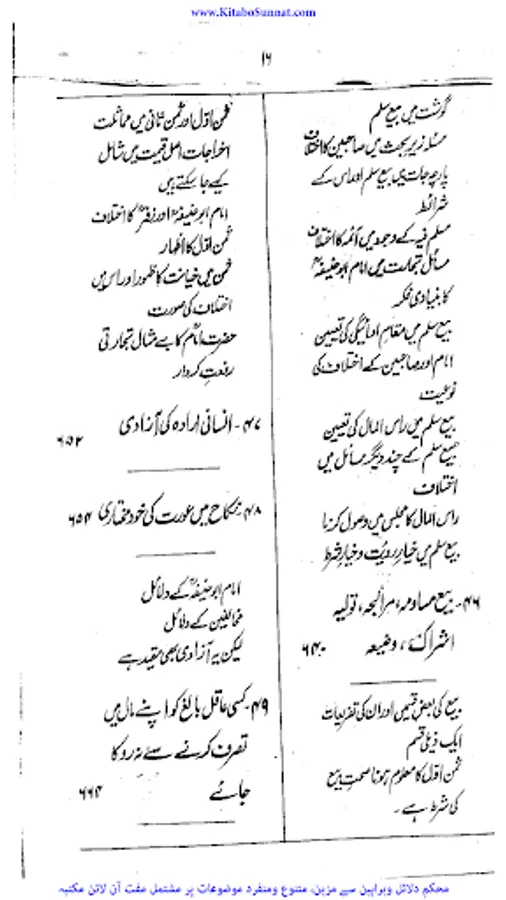 www.KitaboSunnat.com
۱۶
گوشت میں بیع سلم
مسئلہ زیر بحث میں صاحبین کا اختلاف
پارچہ جات میں بیع سلم اور اس کے
شرائط
مسلم فیہ کے وجود میں آئمہ کا اختلاف
مسائل تجارت میں امام ابو حنیفہؒ
کا بنیادی فکر
بیع سلم میں مقام ادائیگی کی تعیین
امام اور صاحبین کے اختلاف کی
نوعیت
بیع سلم میں راس المال کی تعیین
بیع سلم کے چند دیگر مسائل میں
اختلاف
راس المال کا مجلس میں وصول کرنا
بیع سلم میں خیار رویت و خیار شرط
۴۶۔ بیع مساومہ، مرابحہ، تولیہ
اشراک، وضیعہ ۶۴۰
بیع کی بعض قسمیں اور ان کی تفریعات
ایک ذیلی قسم
ثمن اول کا معلوم ہونا صحت بیع
کی شرط ہے۔
ثمن اول اور ثمن ثانی میں مماثلت
اخراجات اصل قیمت میں شامل
کیے جا سکتے ہیں
امام ابو حنیفہؒ اور زفرؒ کا اختلاف
ثمن اول کا اظہار
ثمن میں خیانت کا ظہور اور اس میں
اختلاف کی صورت
حضرت امامؒ کا بے مثال تجارتی
رفعت کردار
۴۷۔ انسانی ارادہ کی آزادی ۶۵۲
۴۸۔ نکاح میں عورت کی خود مختاری ۶۵۴
امام ابو حنیفہؒ کے دلائل
مخالفین کے دلائل
لیکن یہ آزادی بھی مقید ہے
۴۹۔ کسی عاقل بالغ کو اپنے مال میں
تصرف کرنے سے نہ روکا
جائے ۶۶۴
محکم دلائل وبراہین سے مزین، متنوع ومنفرد موضوعات پر مشتمل مفت آن لائن مکتبہ